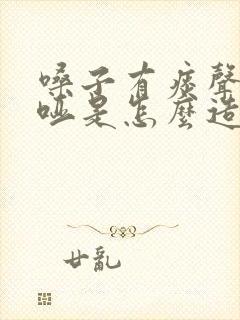 嗓子有痰聲
啞是怎麼造
廿亂